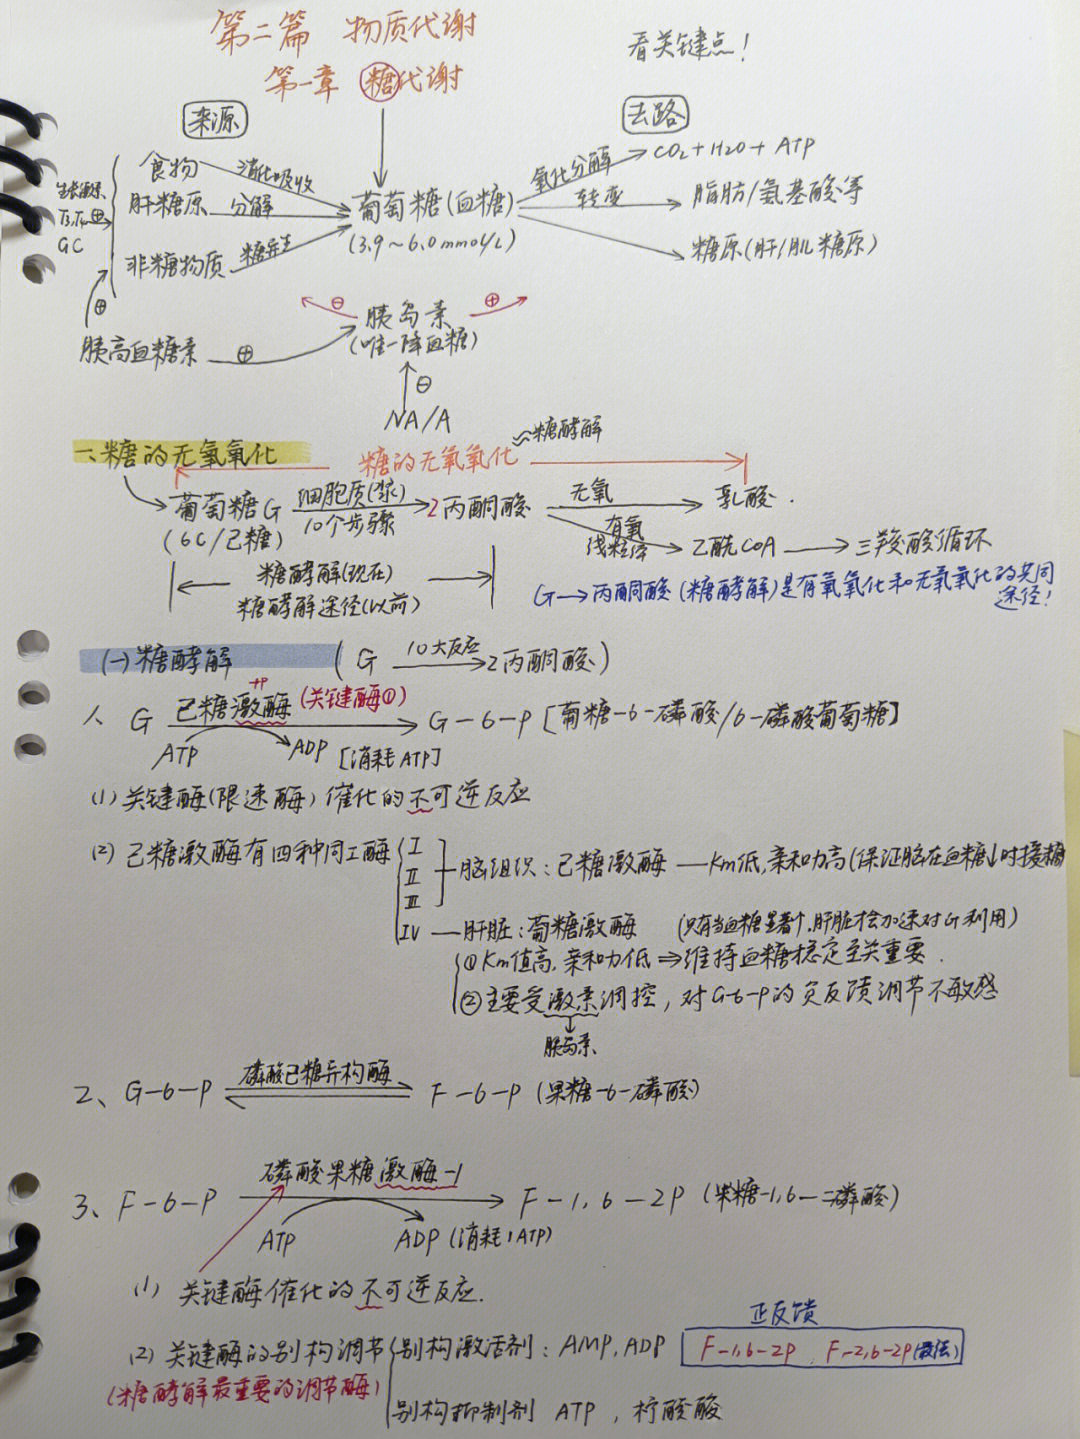 第二篇 物质代谢
看关键点!
第一章 糖代谢
来源
去路
食物 消化吸收
氧化分解 CO2+H2O+ATP
生长激素
T3,T4 ⊕
GC
肝糖原 分解
葡萄糖(血糖)
转变 脂肪/氨基酸等
(3.9~6.0mmol/L)
非糖物质 糖异生
糖原(肝/肌糖原)
⊕
⊖ 胰岛素 ⊕
(唯一降血糖)
胰高血糖素 ⊕
⊖
NA/A
≈糖酵解
一、糖的无氧氧化
糖的无氧氧化
葡萄糖G 细胞质(浆) 2丙酮酸 无氧 乳酸.
(6C/己糖) 10个步骤
有氧
线粒体 乙酰CoA → 三羧酸循环
糖酵解(现在)
糖酵解途径(以前)
G→丙酮酸(糖酵解)是有氧氧化和无氧氧化的共同
途径!
(一)糖酵解 (G 10大反应 2丙酮酸)
+P
1、G 己糖激酶(关键酶①) G-6-P[葡糖-6-磷酸/6-磷酸葡萄糖]
ATP ADP [消耗ATP]
(1)关键酶(限速酶)催化的不可逆反应
(2)己糖激酶有四种同工酶
I
II
III
脑组织:己糖激酶 — Km低,亲和力高(保证脑在血糖↓时接糖
IV — 肝脏:葡糖激酶 (只有当血糖显著↑,肝脏才会加速对G利用)
①Km值高,亲和力低⇒维持血糖稳定至关重要.
②主要受激素调控,对G-6-P的负反馈调节不敏感
胰岛素
2、G-6-P 磷酸己糖异构酶 F-6-P(果糖-6-磷酸)
3、F-6-P 磷酸果糖激酶-1 F-1,6-2P(果糖-1,6-二磷酸)
ATP ADP(消耗1ATP)
(1)关键酶催化的不可逆反应.
正反馈
(2)关键酶的别构调节 别构激活剂:AMP,ADP F-1,6-2P,F-2,6-2P(最强)
(糖酵解最重要的调节酶)
别构抑制剂 ATP,柠酸酸